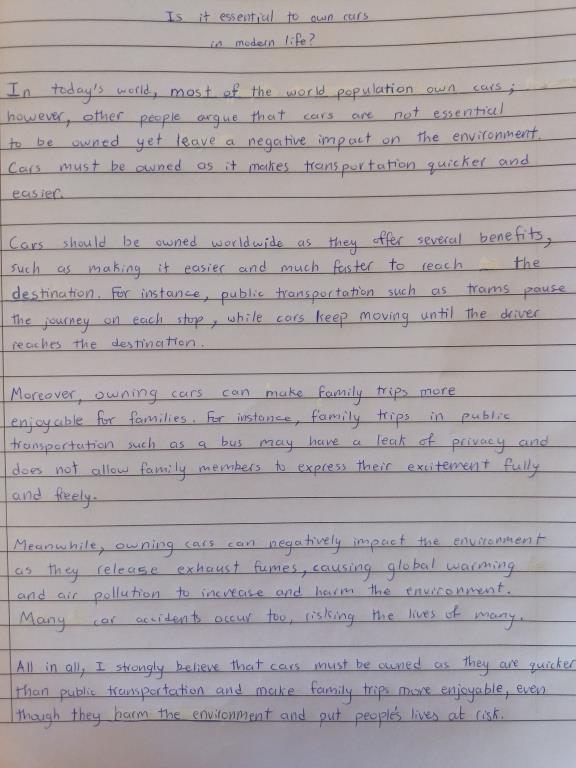 Is it essential to own cars
in modern life?
In today's world, most of the world population own cars;
however, other people argue that cars are not essential
to be owned yet leave a negative impact on the environment.
Cars must be owned as it makes transportation quicker and
easier.
Cars should be owned worldwide as they offer several benefits,
such as making it easier and much faster to reach the
destination. For instance, public transportation such as trams pause
the journey on each stop, while cars keep moving until the driver
reaches the destination.
Moreover, owning cars can make family trips more
enjoyable for families. For instance, family trips in public
transportation such as a bus may have a leak of privacy and
does not allow family members to express their excitement fully
and freely.
Meanwhile, owning cars can negatively impact the environment
as they release exhaust fumes, causing global warming
and air pollution to increase and harm the environment.
Many car accidents occur too, risking the lives of many.
All in all, I strongly believe that cars must be owned as they are quicker
than public transportation and make family trips more enjoyable, even
though they harm the environment and put people's lives at risk.